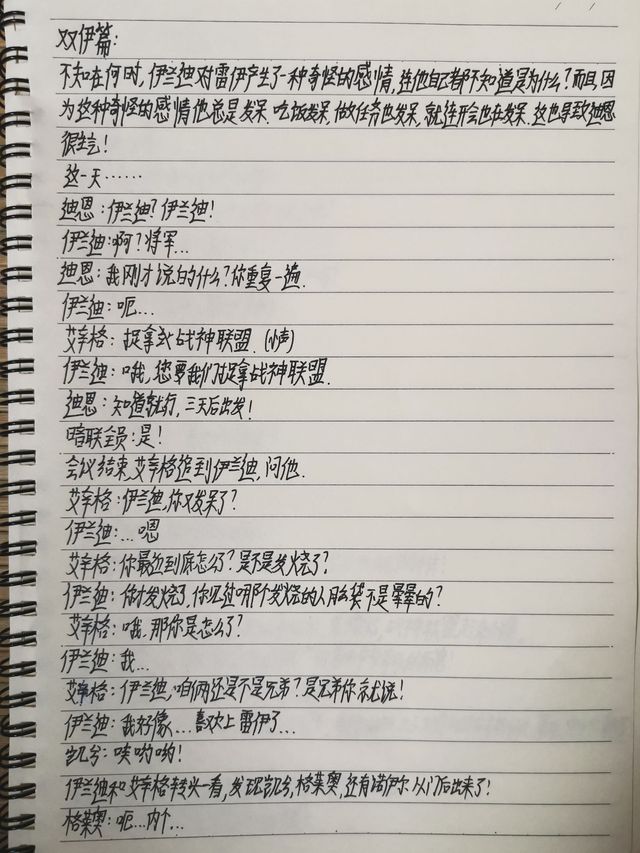 双伊篇:
不知在何时,伊兰迪对雷伊产生了一种奇怪的感情,连他自己都不知道是为什么?而且,因
为这种奇怪的感情他总是发呆.吃饭发呆,做任务也发呆,就连开会也在发呆.这也导致迪恩
很生气!
这一天……
迪恩:伊兰迪?伊兰迪!
伊兰迪:啊?将军...
迪恩:我刚才说的什么?你重复一遍.
伊兰迪:呃...
艾辛格:捉拿战神联盟.(小声)
伊兰迪:哦,您要我们捉拿战神联盟.
迪恩:知道就行,三天后出发!
暗联全员:是!
会议结束,艾辛格追到伊兰迪,问他.
艾辛格:伊兰迪,你又发呆了?
伊兰迪:...嗯
艾辛格:你最近到底怎么了?是不是发烧了?
伊兰迪:你才发烧了,你见过哪个发烧的人脑袋不是晕晕的?
艾辛格:哦,那你是怎么了?
伊兰迪:我...
艾辛格:伊兰迪,咱俩还是不是兄弟?是兄弟你就说!
伊兰迪:我好像...喜欢上雷伊了...
凯兮:唉哟哟!
伊兰迪和艾辛格转头一看,发现凯兮,格莱奥,还有诺伊尔从门后出来了!
格莱奥:呃...内个...